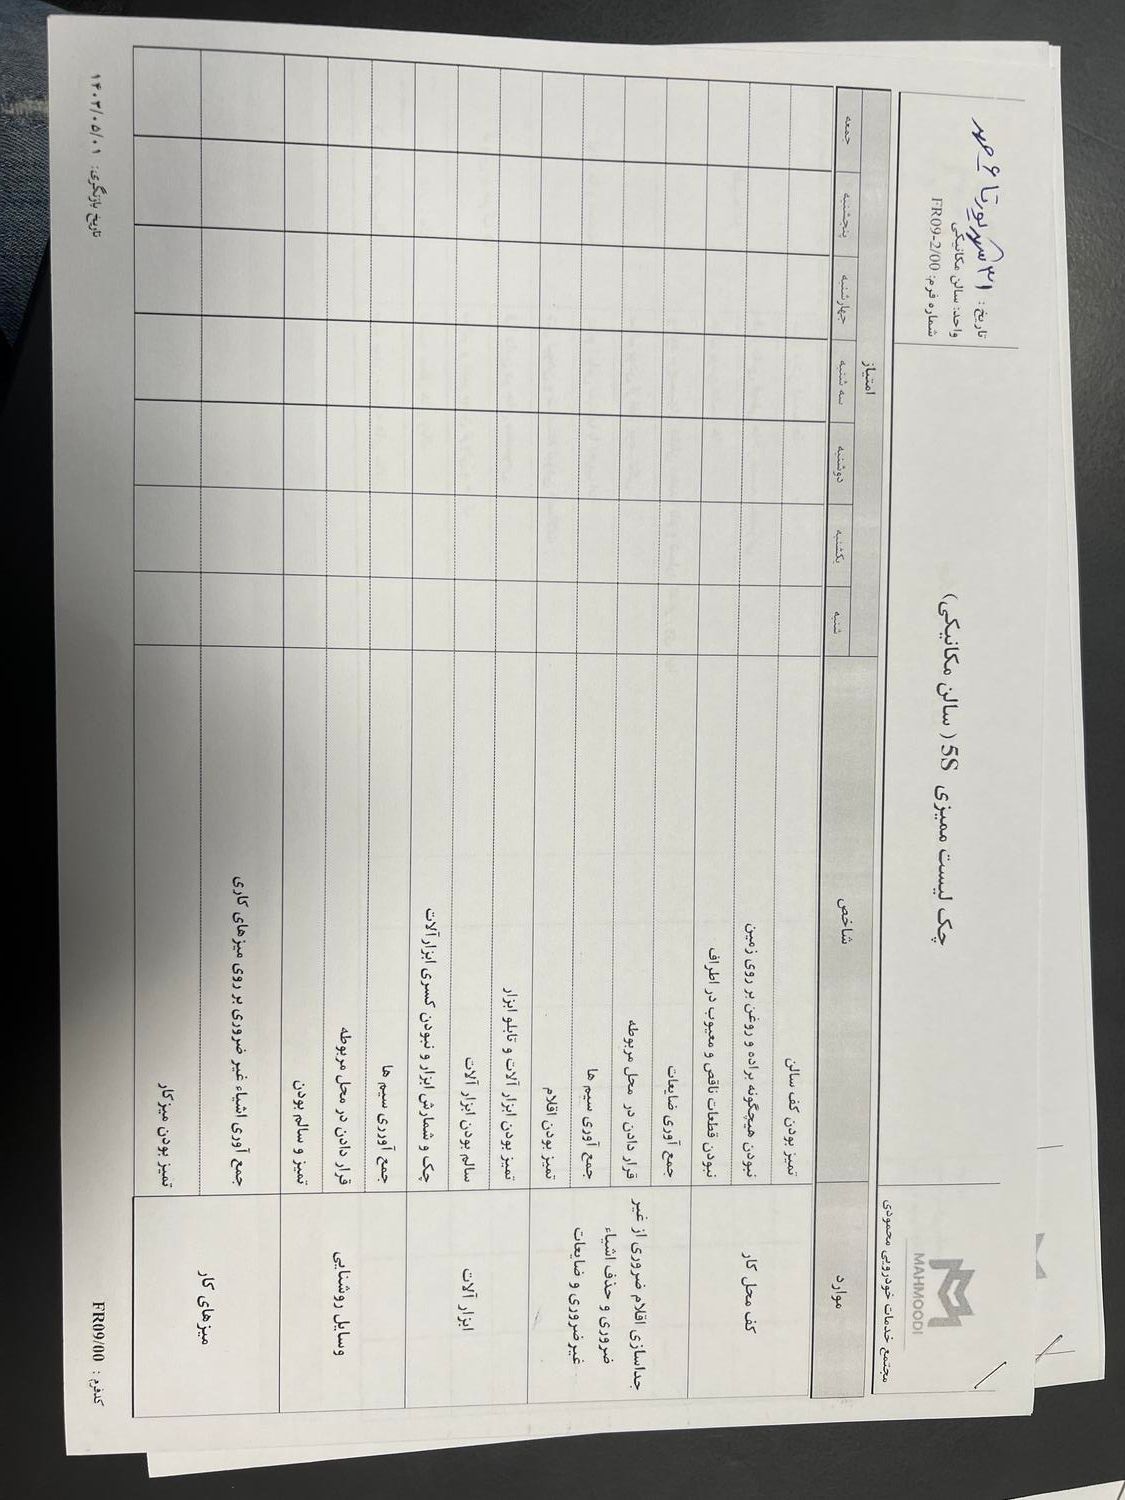 MAHMOODI
مجتمع خدمات خودرویی محمودی
چک لیست ممیزی 5S ( سالن مکانیکی)
تاریخ: ۳۱ شهریور تا ۶ مهر
واحد: سالن مکانیکی
شماره فرم: FR09-2/00
موارد
شاخص
امتیاز
شنبه
یکشنبه
دوشنبه
سه شنبه
چهارشنبه
پنجشنبه
جمعه
کف محل کار
تمیز بودن کف سالن
نبودن هیچگونه براده و روغن بر روی زمین
نبودن قطعات ناقص و معیوب در اطراف
جداسازی اقلام ضروری از غیر
ضروری و حذف اشیاء
غیر ضروری و ضایعات
جمع آوری ضایعات
قرار دادن در محل مربوطه
جمع آوری سیم ها
تمیز بودن اقلام
ابزار آلات
تمیز بودن ابزار آلات و تابلو ابزار
سالم بودن ابزار آلات
چک و شمارش ابزار و نبودن کسری ابزار آلات
وسایل روشنایی
جمع آورری سیم ها
قرار دادن در محل مربوطه
تمیز و سالم بودن
میزهای کار
جمع آوری اشیاء غیر ضروری بر روی میزهای کاری
تمیز بودن میز کار
کدفرم : FR09/00
تاریخ بازنگری: ۱۴۰۳/۰۵/۰۱